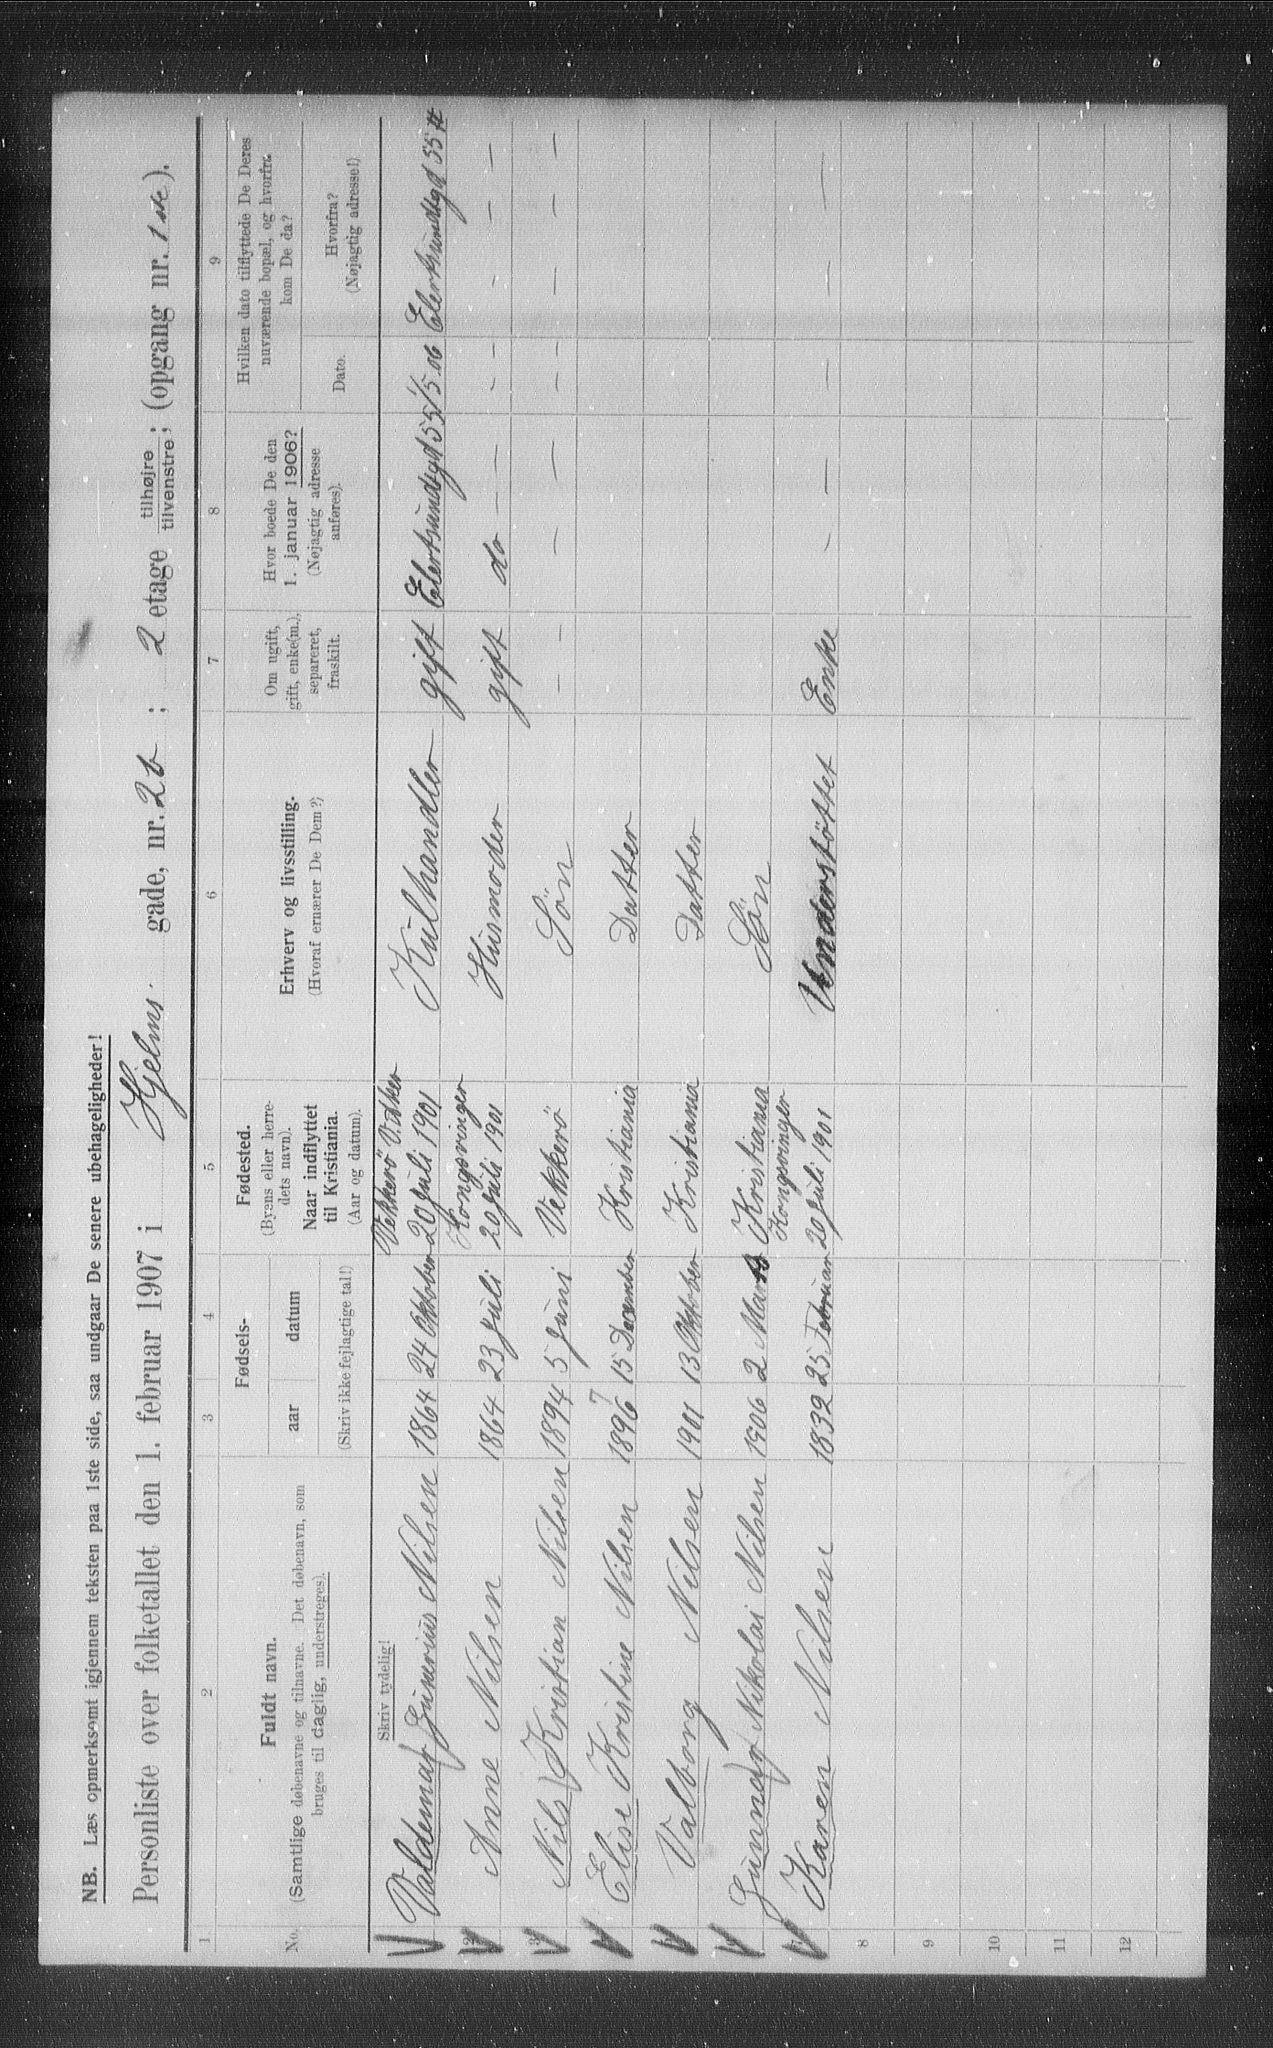 NB. Læs opmerksomt igjennem teksten paa 1ste side, saa undgaar De senere ubehageligheder!
Personliste over folketallet den 1. februar 1907 i Hjelms gade, nr. 2b ; 2 etage tilhøjre tilvenstre; (opgang nr. 1 ste).
1 2 3 4 5 6 7 8 9
No. Fuldt navn. (Samtlige døbenavne og tilnavne. Det døbenavn, som bruges til daglig, understreges).
Fødsels- aar datum (Skriv ikke fejlagtige tal!)
Fødested. (Byens eller herredets navn). Naar indflyttet til Kristiania. (Aar og datum).
Erhverv og livsstilling. (Hvoraf ernærer De Dem?)
Om ugift, gift, enke(m.), separeret, fraskilt.
Hvor boede De den 1. januar 1906? (Nøjagtig adresse anføres).
Hvilken dato tilflyttede De Deres nuværende bopæl, og hvorfra kom De da?
Dato. Hvorfra? (Nøjagtig adresse!)
Skriv tydelig!
Valdemar Gunerius Nilsen 1864 24 Oktober Vækkerö V. Aker 20 Juli 1901 Külhandler gift Elertsundtgd 55 1/5.06 Elertsundtgd 55
2 Anne Nilsen 1864 23 Juli Kongsvinger 20 Juli 1901 Hüsmoder gift do — — — — — —
3 Nils Kristian Nilsen 1894 5 Juni Vekkerö Sön — — — — — — — — —
Elise Kristine Nilsen 1897 15 December Kristiania Datter
Valborg Nilsen 1901 13 Oktober Kristiania Datter
Gunnar Nikolai Nilsen 1906 2 Marts Kristiania Sön
7 Karen Nilsen 1832 25 Februar Kongsvinger 20 Juli 1901 Understöttet Enke — — — — —
8
9
10
11
12